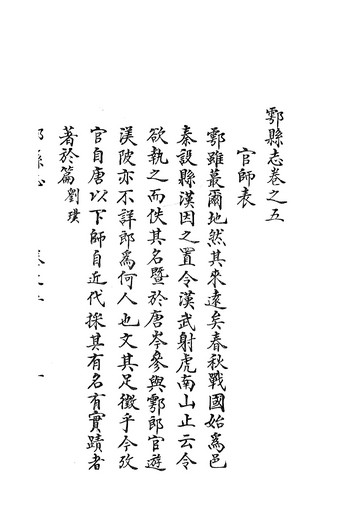 鄠縣志卷之五
官師表
鄠雖蕞爾地然其來遠矣春秋戰國始爲邑
秦設縣漢因之置令漢武射虎南山止云令
欲執之而佚其名暨於唐岑參與鄠郎官遊
渼陂亦不詳郎爲何人也文其足徵乎今攷
官自唐以下師自近代採其有名有實蹟者
著於篇劉璞